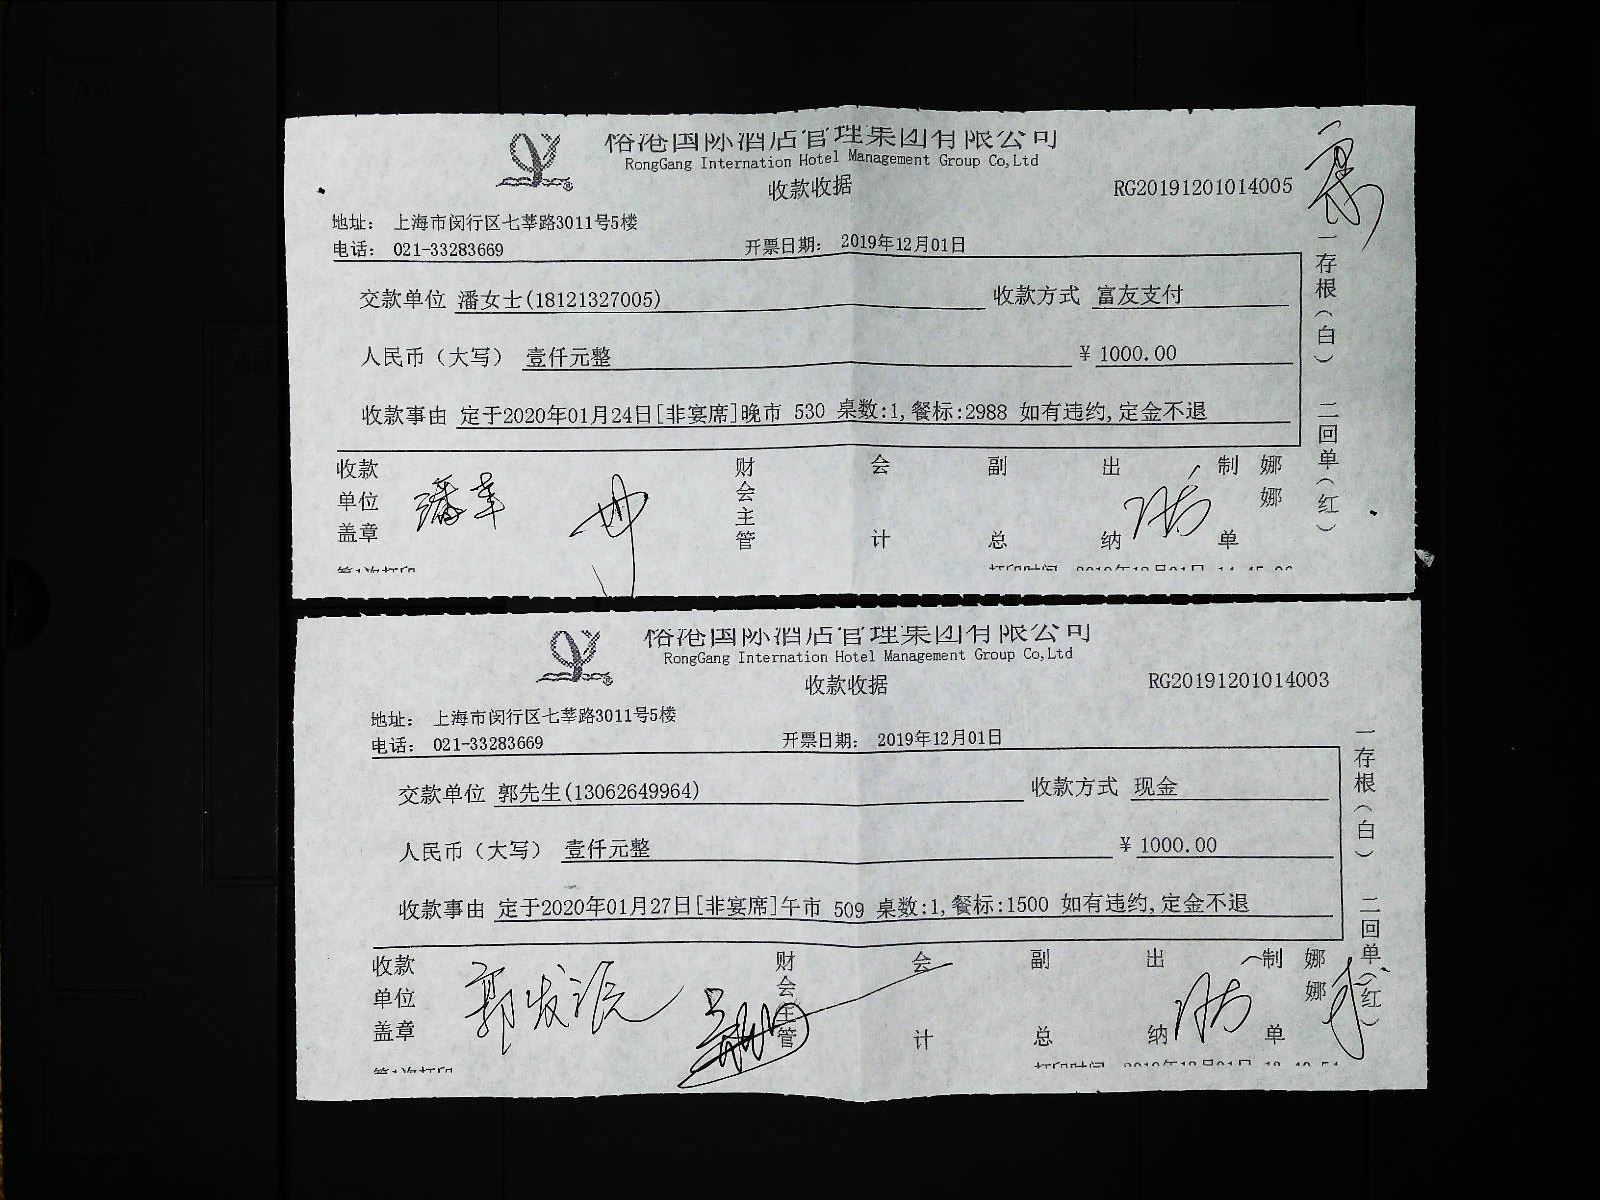 榕港国际酒店管理集团有限公司
RongGang Internation Hotel Management Group Co,Ltd
收款收据
RG20191201014005
地址： 上海市闵行区七莘路3011号5楼
电话： 021-33283669
开票日期： 2019年12月01日
交款单位 潘女士(18121327005)
收款方式 富友支付
人民币（大写） 壹仟元整
¥ 1000.00
收款事由 定于2020年01月24日[非宴席]晚市 530 桌数:1,餐标:2988 如有违约,定金不退
一存根（白） 二回单（红）
收款单位盖章
财会主管
会计
副总
出纳
制单
娜娜
第1次打印
打印时间 2019年12月01日
榕港国际酒店管理集团有限公司
RongGang Internation Hotel Management Group Co,Ltd
收款收据
RG20191201014003
地址： 上海市闵行区七莘路3011号5楼
电话： 021-33283669
开票日期： 2019年12月01日
交款单位 郭先生(13062649964)
收款方式 现金
人民币（大写） 壹仟元整
¥ 1000.00
收款事由 定于2020年01月27日[非宴席]午市 509 桌数:1,餐标:1500 如有违约,定金不退
一存根（白） 二回单（红）
收款单位盖章
财会主管
会计
副总
出纳
制单
娜娜
第1次打印
打印时间 2019年12月01日